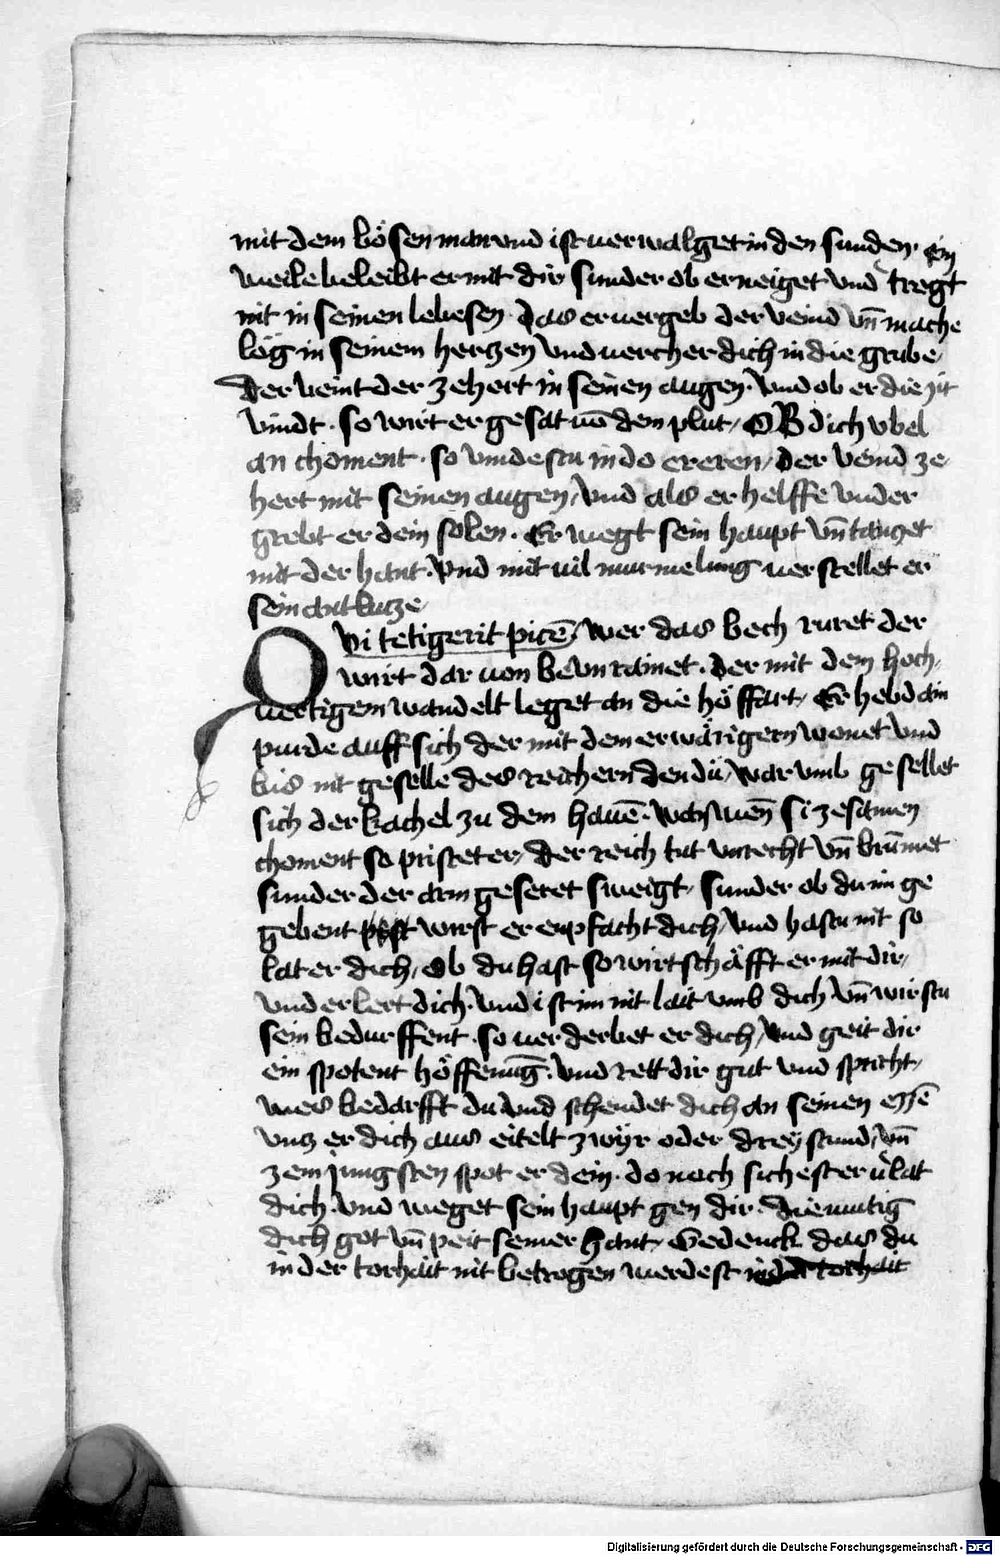 mit dem bösen man vnd ist uerwalget in den sunden · Ein
weile beleibt er mit dir sunder ob er neiget vnd tregt
nit in seinen lebesen · das er uergeb der veind vn̄ mache
lög in seinem herczen vnd uercher dich in die grube /
Der veint der zehert in seinen augen · vnd ob er die zit
vindt · so wirt er gesat uō dem plut / OB dich vbel
an choment · so vindestu in do ereren / der veind ze
hert mit seinen augen / vnd als er helffe vnder
grebt er dein solen · Er wegt sein haupt vn̄ tanzet
mit der hant · vnd mit uil murmelung uerstellet er
sein antlucze /
QVi tetigerit picē / wer das bech ruret der
wirt dar uon bevnrainet · der mit dem hoch /
uertigem wandelt leget an die höffart / Er hebd ain
purde auff sich der mit dem erwärigern wonet vnd
bis nit geselle des reichern den dū / war vmb gesellet
sich der kachel zu dem hauē · wan wen̄ si zesamen
choment so pristet er / der reich tut vnrecht vn̄ brūmet
sunder der arm geseret sweigt / sunder ob du im ge
gebent wirst er enpfacht dich / vnd hastu nit so
lat er dich / Ob du hast so wirtschäfft er mit dir /
vnd erlert dich · vnd ist im nit lait vmb dich vn̄ wirstu
sein bedurffent · so uerderbet er dich / vnd geit dir
ein spotent höffenūg · vnd rett dir gut vnd spricht /
wes bedarfft du vnd schendet dich an seinen essē
vncz er dich aus eitelt zwÿr oder dreÿ stund / vn̄
zem jungsten spot er dein · do noch sichest er ùlat
dich · vnd weget sein haupt gen dir · diemutig
dich got vn̄ peit seiner hant / Gedenck das du
in der torhait nit betrogen werdest in der torhait
Digitalisierung gefördert durch die Deutsche Forschungsgemeinschaft - DFG